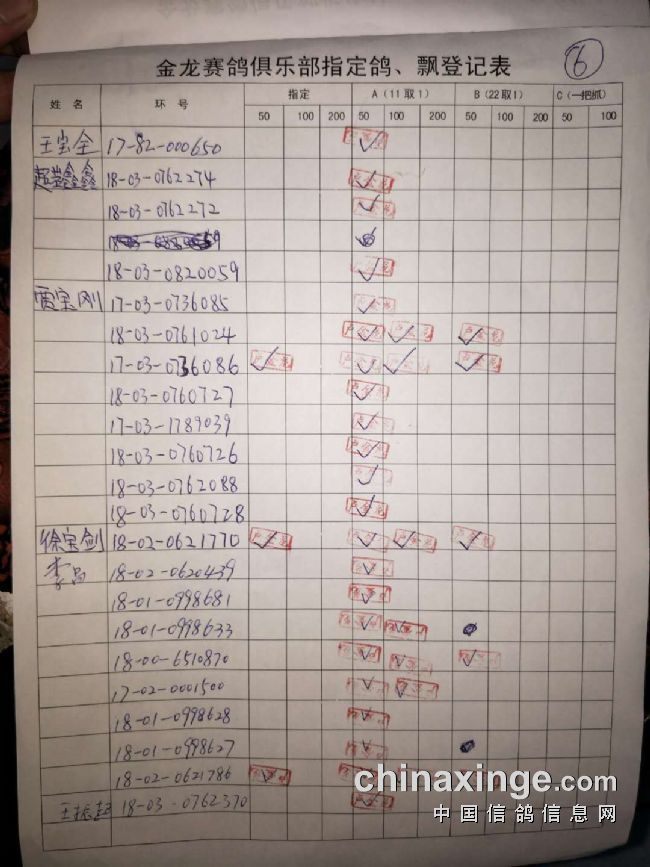 金龙赛鸽俱乐部指定鸽、飘登记表
6
姓名 环号 指定 A(11取1) B(22取1) C(一把抓)
50 100 200 50 100 200 50 100 200 50 100
王宝全 17-82-000650
超鑫鑫 18-03-0762274
18-03-0762272
18-03-0820059
贾宝刚 17-03-0736085
18-03-0761024
17-03-0736086
18-03-0760727
17-03-1789039
18-03-0760726
18-03-0762088
18-03-0760728
徐宝剑 18-02-0621770
李 18-02-0620439
18-01-0998681
18-01-0998633
18-00-6510870
17-02-0001500
18-01-0998628
18-01-0998627
18-02-0621786
王振起 18-03-0762370
chinaxinge.com
中国信鸽信息网